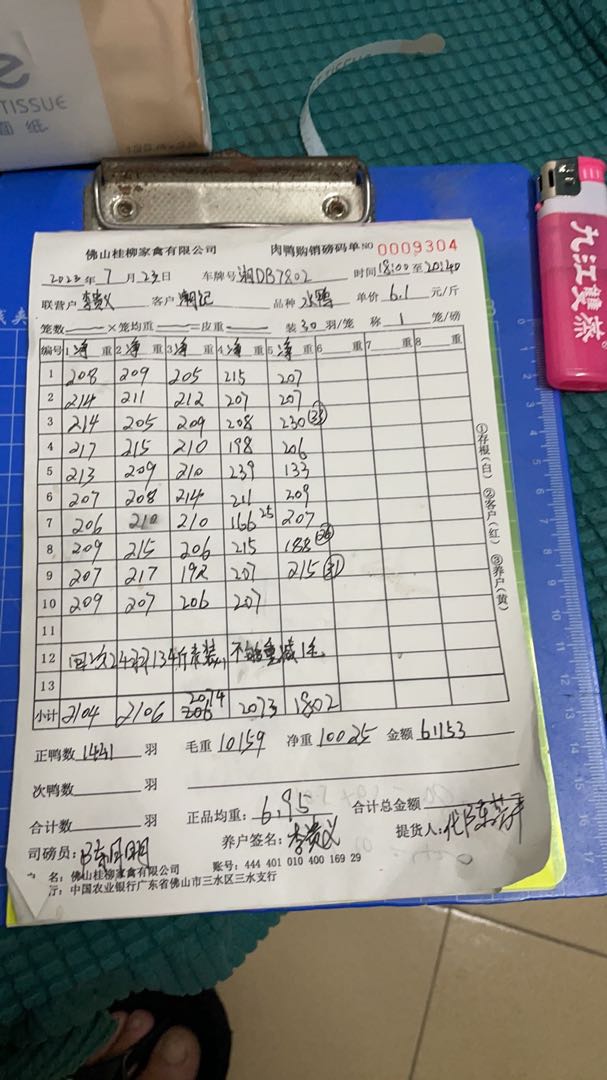 TISSUE
面纸
九江雙蒸
佛山桂柳家禽有限公司 肉鸭购销磅码单 NO 0009304
2023年7月23日 车牌号 湘DB7802 时间 18:00 至 20:40
联营户 李贵义 客户 潮记 品种 水鸭 单价 6.1 元/斤
笼数 ×笼均重 =皮重 装 30 羽/笼 称 1 笼/磅
编号 1 净 重 2 净 重 3 净 重 4 净 重 5 净 重 6 重 7 重 8 重
1 208 209 205 215 207
2 214 211 212 207 207
3 214 205 209 208 230
4 217 215 210 198 206
5 213 209 210 239 133
6 207 208 214 211 209
7 206 210 210 166 25 207
8 209 215 206 215 188
9 207 217 192 207 215 31
10 209 207 206 207
11
12 24羽134斤 不够重减1毛
13
小计 2104 2106 2074 2073 1802
正鸭数 1441 羽 毛重 10159 净重 10025 金额 61153
次鸭数 羽
合计数 羽 正品均重: 6.95 合计总金额
司磅员: 养户签名: 李贵义 提货人:
名: 佛山桂柳家禽有限公司 账号: 444 401 010 400 169 29
行: 中国农业银行广东省佛山市三水区三水支行
①存根(白) ②客户(红) ③养户(黄)